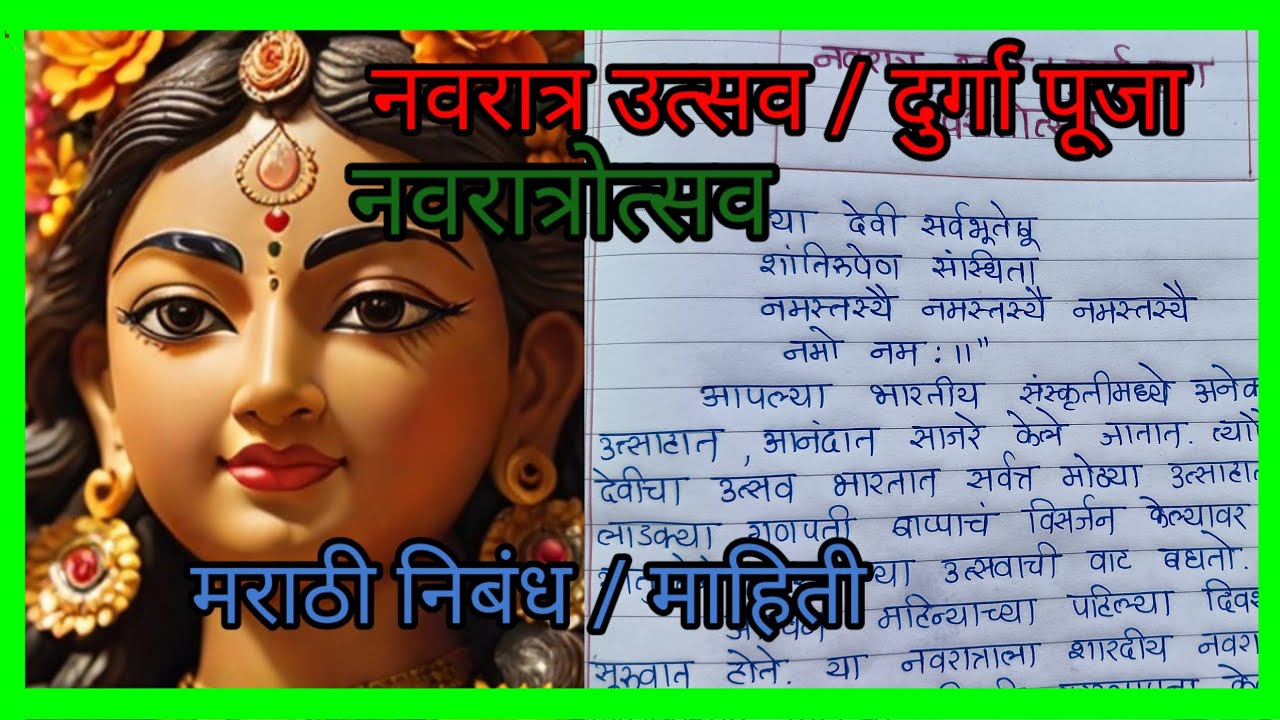 नवरात्र उत्सव / दुर्गा पूजा
नवरात्रोत्सव
या देवी सर्वभूतेषू
शांतिरुपेण संस्थिता
नमस्तस्यै नमस्तस्यै नमस्तस्यै
नमो नम : ।।"
आपल्या भारतीय संस्कृतीमध्ये अनेक
उत्साहात , आनंदात साजरे केले जातात.
देवीचा उत्सव भारतात सर्वत्र मोठ्या उत्साहात
लाडक्या गणपती बाप्पाचं विसर्जन केल्यावर
उत्सवाची वाट बघतो.
मराठी निबंध / माहिती
महिन्याच्या पहिल्या
सुरुवात होते. या नवरात्राला शारदीय